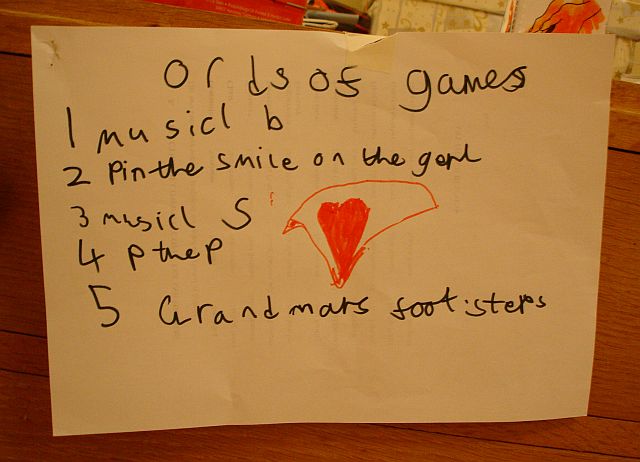 Ords of games
1 musicl b
2 Pin the smile on the gerl
3 musicl S
4 P the P
5 Grandmars footisteps